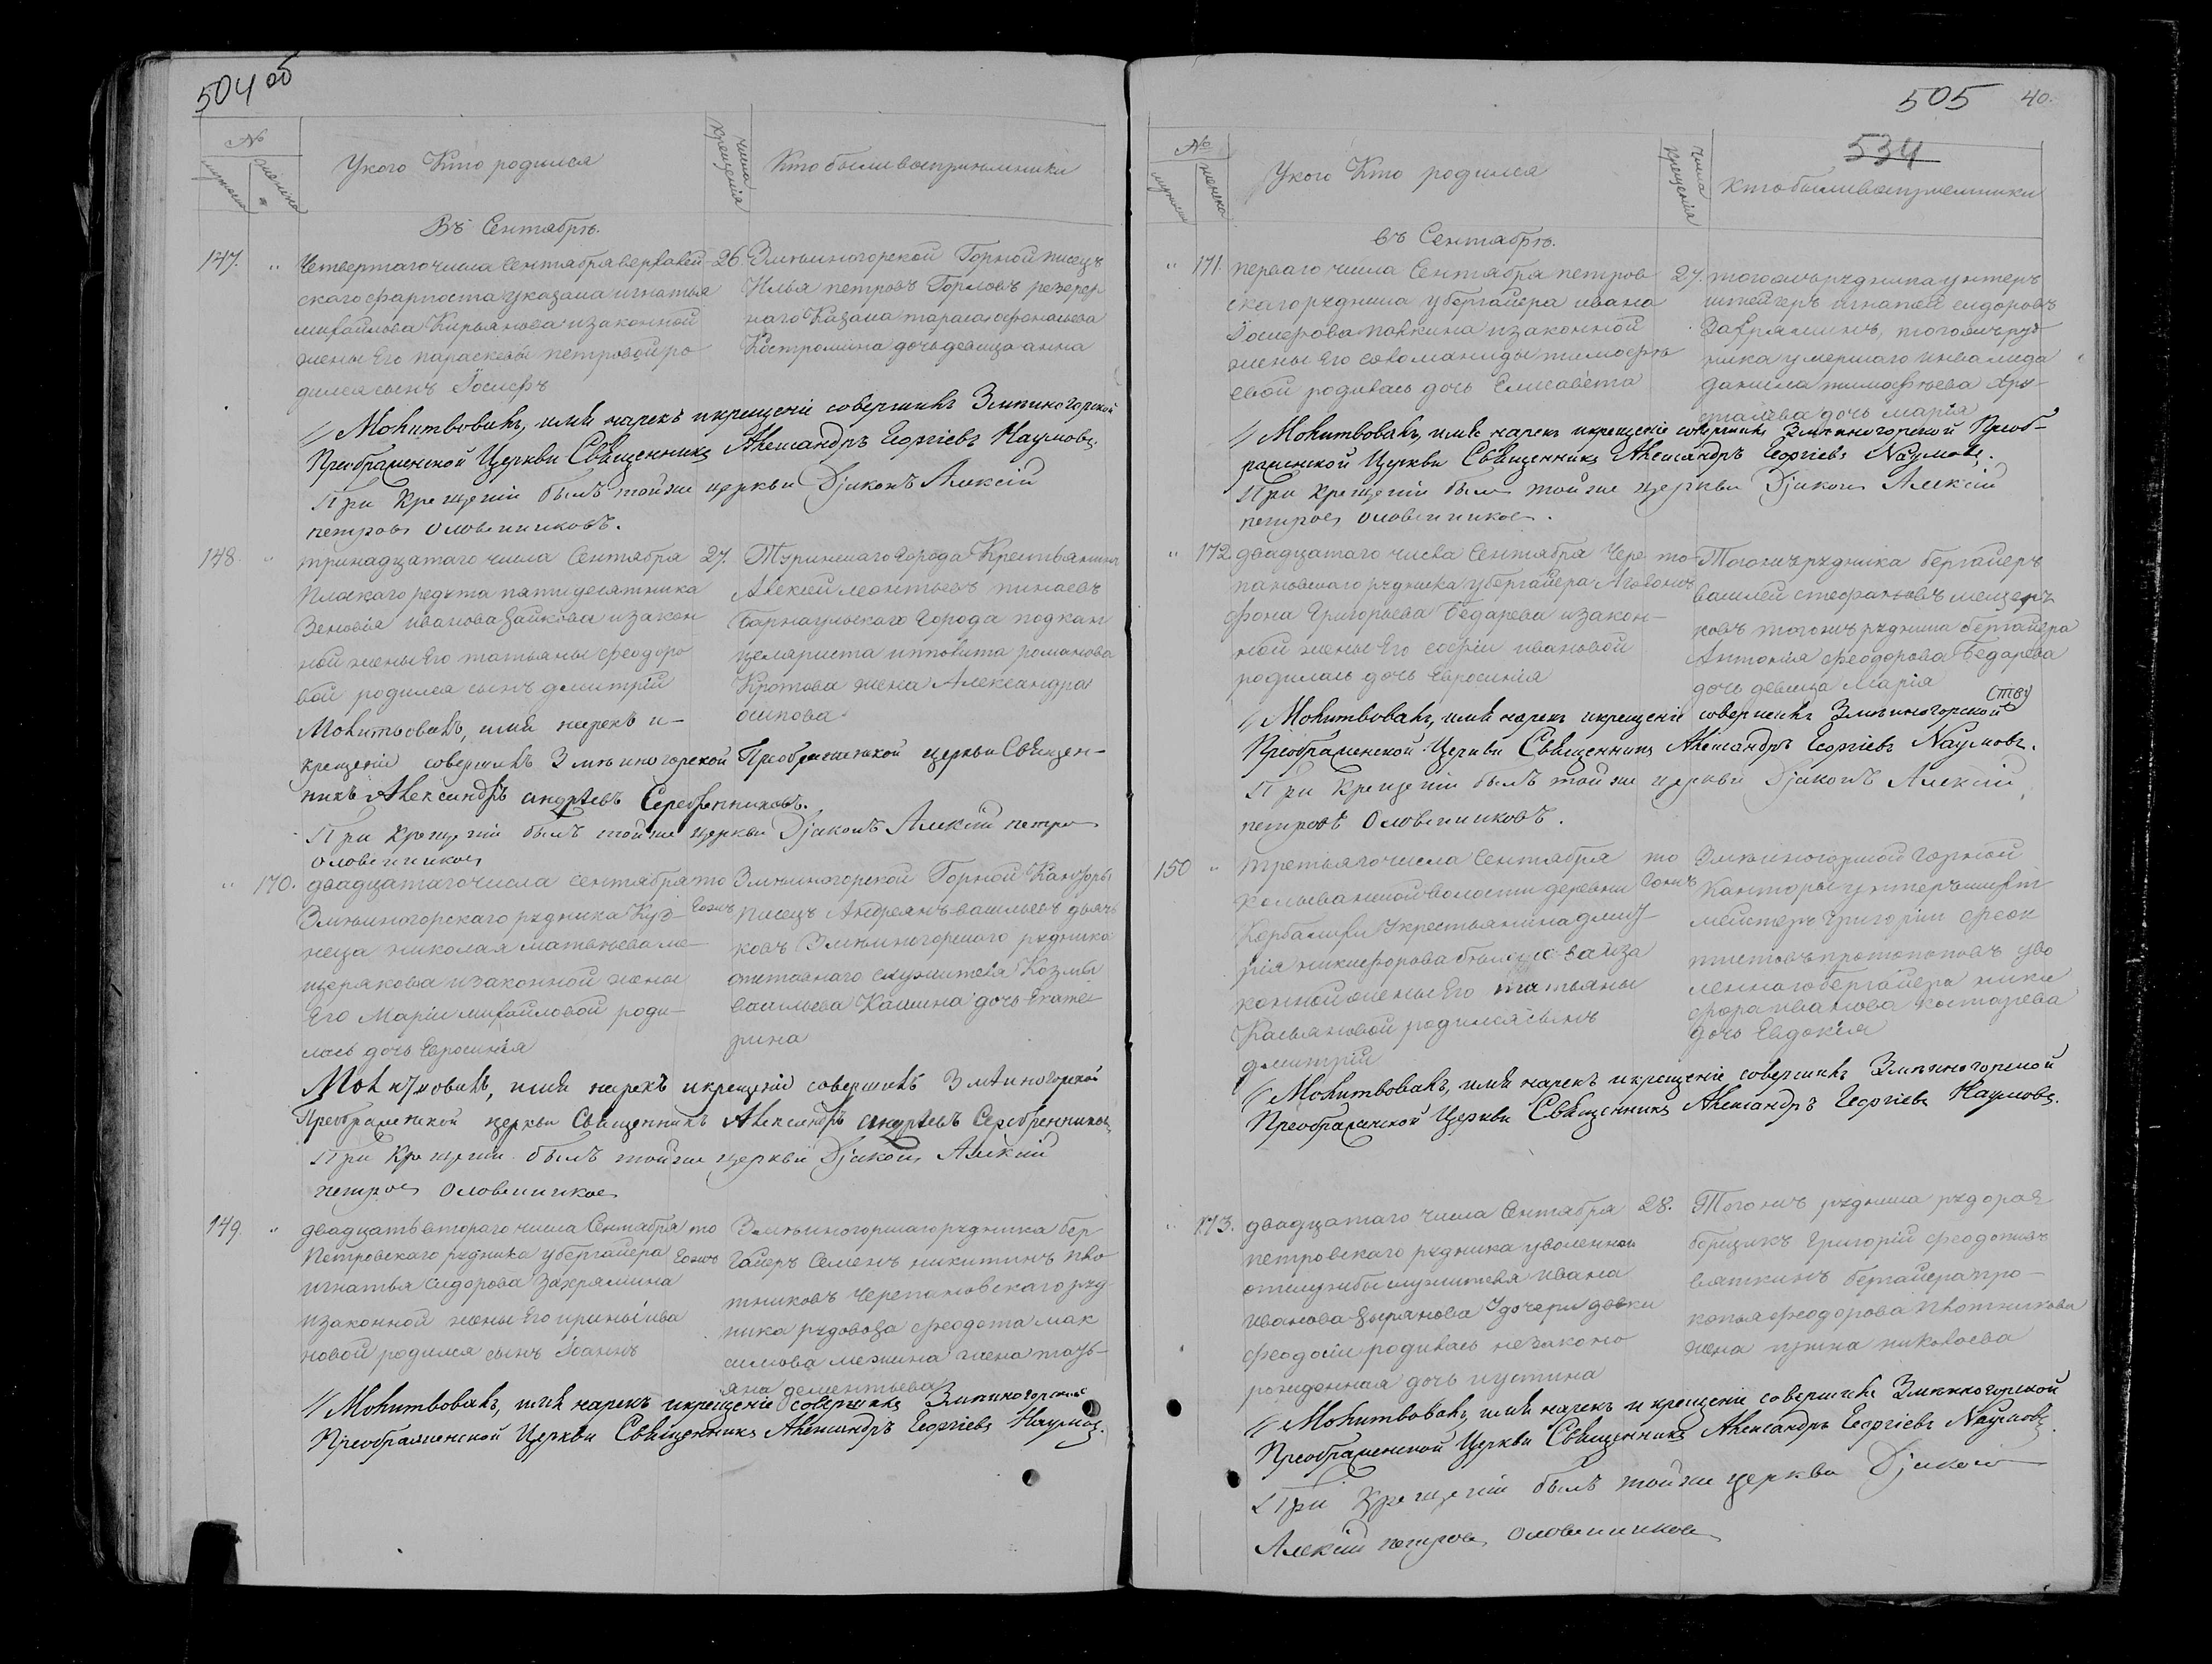 504 об
№
мужеска
женска
Укого Кто родился
числа крещенія
Кто были восприемники
Въ Сентябрѣ.
147. " Четвертаго числа Сентября верх
скаго фарпоста указака игнатья
михайлова Кирьянова изаконной
жены Его параскевы петровой ро
дился сынъ Іосифъ
26. Змѣиногорской Горной писецъ
Илья петровъ Горловъ
наго Казака тараса
Костромина дочь девица анна
Молитвовалъ, имя нарекъ икрещеніе совершилъ Змѣиногорской
Преображенской Церкви Священникъ Александръ Георгіевъ Наумовъ.
При крещеніи былъ тойже церкви Діаконъ Алексій
петровъ Оловенниковъ.
148. " тринадцатаго числа Сентября
редута пятидесятника
Зеновія иванова Зайкова изакон
ной жены Его татьяны феодоро
вой родился сынъ дмитрій
27. города Крестьянинъ
Алексей леонтьевъ пинаевъ
Барнаульскаго Города подкан
целяриста ипполита романова
Кротова жена Александра
осипова
Молитвовалъ, имя нарекъ и-
крещеніе совершилъ Змѣиногорской Преображенской церкви Священ-
никъ Александръ андреевъ Серебренниковъ.
При крещеніи былъ тойже церкви Діаконъ Алексій петро
Оловенниковъ
" 170. двадцатаго числа сентября
Змѣиногорскаго рудника Куз-
неца николая матвѣева ме-
щерякова изаконной жены
Его Маріи михайловой роди-
лась дочь Евросинія
то
гожъ
Змѣиногорской Горной Канторы
писецъ Андреянъ васильевъ дьяч
ковъ Змѣиногорскаго рудника
отставнаго служителя Козмы
васильева Кашина дочь Екате
рина
Молитвовалъ, имя нарекъ икрещеніе совершилъ Змѣиногорской
Преображенской церкви Священникъ Александръ андреевъ Серебренниковъ
При Крещеніи былъ тойже церкви Діаконъ Алексій
петровъ Оловенниковъ
149. " двадцать втораго числа Сентября
Петровскаго рудника убергайера
игнатья Сидорова Захрямина
изаконной жены Его ирины ива
новой родился сынъ Іоаннъ
то
гожъ
Змѣиногорскаго рудника бер
гайеръ Семенъ никитинъ пло
тниковъ Черепановскаго руд
ника рудовоза феодота мак
симова межина жена тать-
яна дементьева
Молитвовалъ, имя нарекъ икрещеніе совершилъ Змѣиногорской
Преображенской Церкви Священникъ Александръ Георгіевъ Наумовъ.
505 40.
534
№
мужеска
женска
Укого Кто родился
числа крещенія
Кто были восприемники
въ Сентябрѣ.
" 171. перваго числа Сентября петров
скаго рудника убергайера ивана
Іосифова павкина изаконной
жены Его соломаниды тимофѣ
евой родилась дочь Елисавета
27. тогожъ рудника унтеръ
штейгеръ игнатей сидоровъ
Захряминъ, тогожъ руд
ника умершаго инвалида
данила тимофѣева Хру
сталева дочь марія
Молитвовалъ, имя нарекъ икрещеніе совершилъ Змѣиногорской Преоб-
раженской Церкви Священникъ Александръ Георгіевъ Наумовъ.
При Крещеніи былъ тойже церкви Діаконъ Алексій
петровъ Оловенниковъ.
" 172. двадцатаго числа Сентября Чере
пановскаго рудника убергайера Агафон
фона Григорьева Бедарева изакон-
ной жены Его софіи ивановой
родилась дочь Евросинія
то
гожъ
Тогожъ рудника бергайеръ
василей стефановъ мещеря
ковъ тогожъ рудника бергайера
Антонія феодорова Бедарева
дочь девица Марія
Молитвовалъ, имя нарекъ икрещеніе совершилъ Змѣиногорской
Преображенской Церкви Священникъ Александръ Георгіевъ Наумовъ.
При Крещеніи былъ тойже церкви Діаконъ Алексій
петровъ Оловенниковъ.
150 " Третьяго числа Сентября
Колыванской волости деревни
Корбалихи Укрестьянина дмит-
рія никифорова иза
конной жены Его татьяны
Касьяновой родился сынъ
дмитрій
то
гожъ
Змѣиногорской Горной
Канторы унтеръшихт
мейстеръ Григорій феок
тистовъ протопоповъ уво
леннаго бергайера ники
фора иванова костарева
дочь Евдокія
Молитвовалъ, имя нарекъ икрещеніе совершилъ Змѣиногорской
Преображенской Церкви Священникъ Александръ Георгіевъ Наумовъ.
" 173. двадцатаго числа Сентября
петровскаго рудника уволеннаго
отслужбы служителя ивана
иванова Зырянова Удочери девки
феодосіи родилась незаконо
рожденная дочь иустина
28. Тогожъ рудника рудораз
борщикъ Григорій феодотовъ
вяткинъ бергайера про-
копья феодорова плотникова
жена ирина николаева
Молитвовалъ, имя нарекъ икрещеніе совершилъ Змѣиногорской
Преображенской Церкви Священникъ Александръ Георгіевъ Наумовъ.
При Крещеніи былъ тойже церкви Діаконъ
Алексій петровъ Оловенниковъ